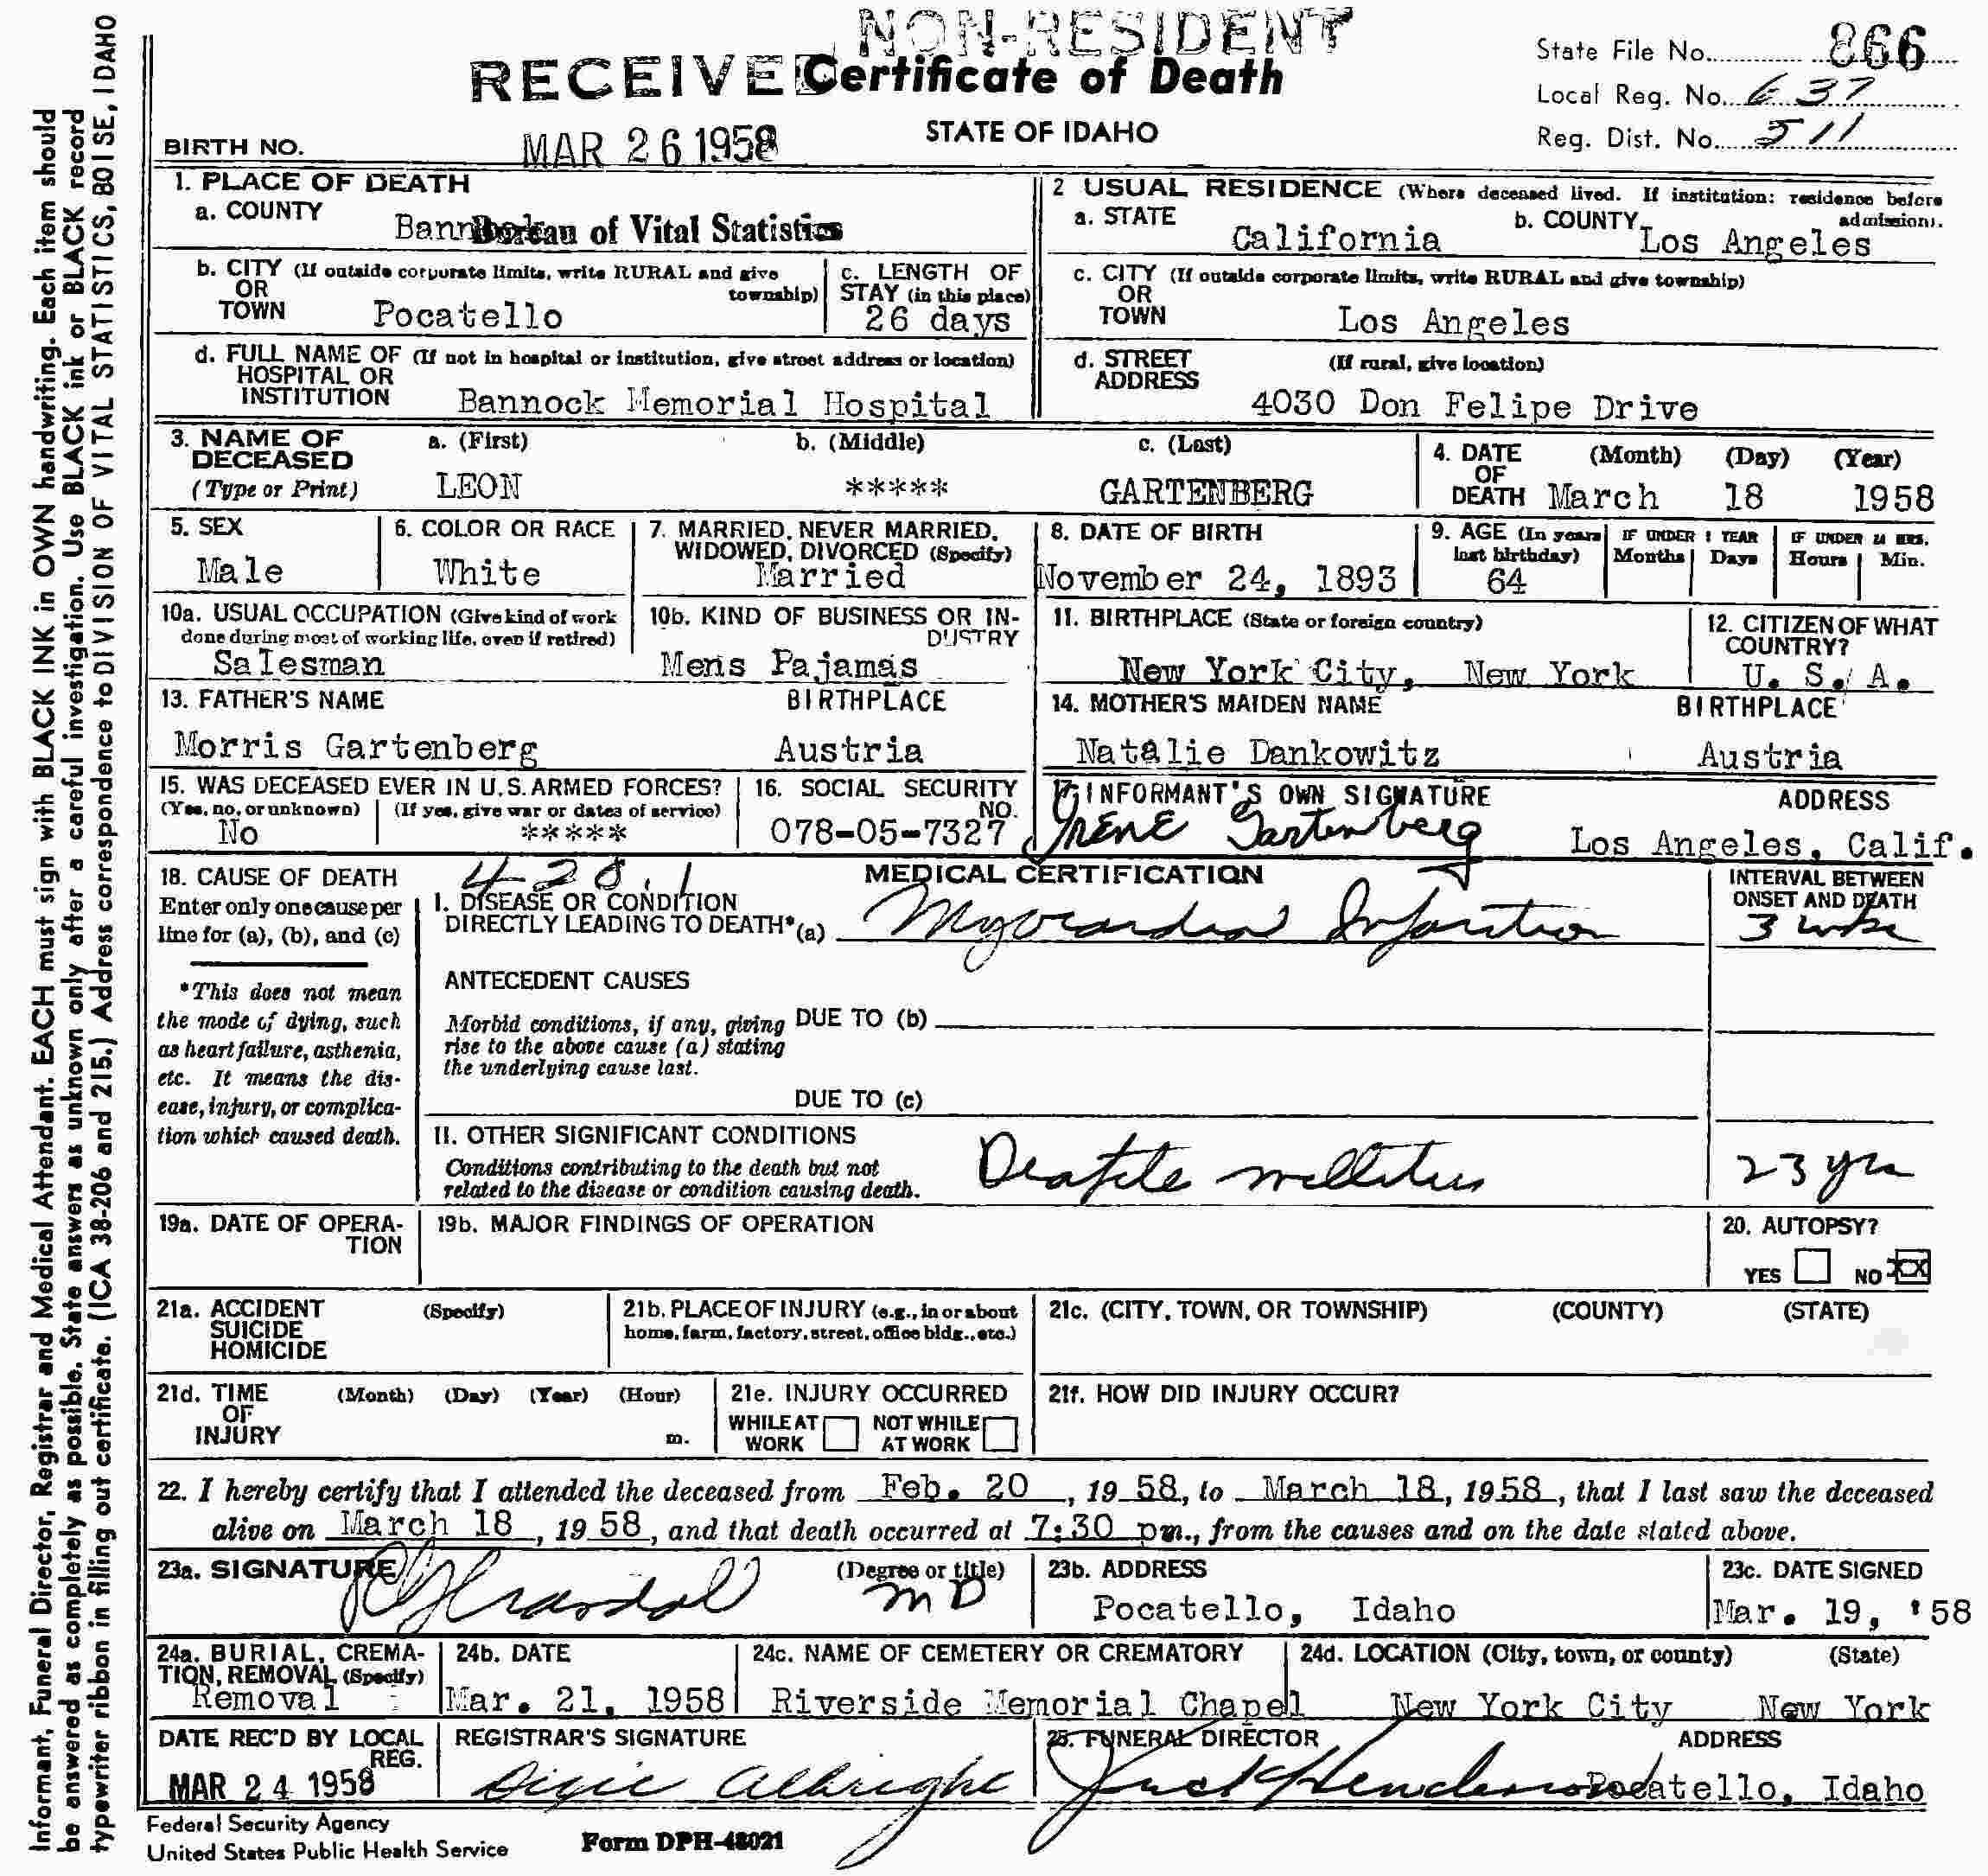 NON-RESIDENT
RECEIVED Certificate of Death
State File No. 866
Local Reg. No. 637
Reg. Dist. No. 511
STATE OF IDAHO
BIRTH NO.
MAR 26 1958
Bureau of Vital Statistics
1. PLACE OF DEATH
a. COUNTY
Bannock
2 USUAL RESIDENCE (Where deceased lived. If institution: residence before admission).
a. STATE California
b. COUNTY Los Angeles
b. CITY (If outside corporate limits, write RURAL and give township)
OR
TOWN Pocatello
c. LENGTH OF
STAY (in this place)
26 days
c. CITY (If outside corporate limits, write RURAL and give township)
OR
TOWN Los Angeles
d. FULL NAME OF (If not in hospital or institution, give street address or location)
HOSPITAL OR
INSTITUTION Bannock Memorial Hospital
d. STREET (If rural, give location)
ADDRESS
4030 Don Felipe Drive
3. NAME OF
DECEASED
(Type or Print)
a. (First) b. (Middle) c. (Last)
LEON ***** GARTENBERG
4. DATE (Month) (Day) (Year)
OF
DEATH March 18 1958
5. SEX
Male
6. COLOR OR RACE
White
7. MARRIED, NEVER MARRIED,
WIDOWED, DIVORCED (Specify)
Married
8. DATE OF BIRTH
November 24, 1893
9. AGE (In years
last birthday)
64
IF UNDER 1 YEAR
Months Days
IF UNDER 24 HRS.
Hours Min.
10a. USUAL OCCUPATION (Give kind of work
done during most of working life, even if retired)
Salesman
10b. KIND OF BUSINESS OR IN-
DUSTRY
Mens Pajamas
11. BIRTHPLACE (State or foreign country)
New York City, New York
12. CITIZEN OF WHAT
COUNTRY?
U. S. A.
13. FATHER'S NAME BIRTHPLACE
Morris Gartenberg Austria
14. MOTHER'S MAIDEN NAME BIRTHPLACE
Natalie Dankowitz Austria
15. WAS DECEASED EVER IN U.S. ARMED FORCES?
(Yes, no, or unknown) (If yes, give war or dates of service)
No *****
16. SOCIAL SECURITY
NO.
078-05-7327
17. INFORMANT'S OWN SIGNATURE ADDRESS
Irene Gartenberg Los Angeles, Calif.
18. CAUSE OF DEATH
Enter only one cause per
line for (a), (b), and (c)
*This does not mean
the mode of dying, such
as heart failure, asthenia,
etc. It means the dis-
ease, injury, or complica-
tion which caused death.
MEDICAL CERTIFICATION
INTERVAL BETWEEN
ONSET AND DEATH
420.1
I. DISEASE OR CONDITION
DIRECTLY LEADING TO DEATH* (a) Myocardial Infarction 3 wks
ANTECEDENT CAUSES
Morbid conditions, if any, giving
rise to the above cause (a) stating
the underlying cause last.
DUE TO (b)
DUE TO (c)
II. OTHER SIGNIFICANT CONDITIONS
Conditions contributing to the death but not
related to the disease or condition causing death.
Diabetes mellitus 23 yrs
19a. DATE OF OPERA-
TION
19b. MAJOR FINDINGS OF OPERATION
20. AUTOPSY?
YES NO XX
21a. ACCIDENT (Specify)
SUICIDE
HOMICIDE
21b. PLACE OF INJURY (e.g., in or about
home, farm, factory, street, office bldg., etc.)
21c. (CITY, TOWN, OR TOWNSHIP) (COUNTY) (STATE)
21d. TIME (Month) (Day) (Year) (Hour)
OF
INJURY m.
21e. INJURY OCCURRED
WHILE AT WORK NOT WHILE AT WORK
21f. HOW DID INJURY OCCUR?
22. I hereby certify that I attended the deceased from Feb. 20, 1958, to March 18, 1958, that I last saw the deceased
alive on March 18, 1958, and that death occurred at 7:30 pm., from the causes and on the date stated above.
23a. SIGNATURE (Degree or title)
MD
23b. ADDRESS
Pocatello, Idaho
23c. DATE SIGNED
Mar. 19, '58
24a. BURIAL, CREMA-
TION, REMOVAL (Specify)
Removal
24b. DATE
Mar. 21, 1958
24c. NAME OF CEMETERY OR CREMATORY
Riverside Memorial Chapel
24d. LOCATION (City, town, or county) (State)
New York City New York
DATE REC'D BY LOCAL
REG.
MAR 24 1958
REGISTRAR'S SIGNATURE
Dixie Albright
25. FUNERAL DIRECTOR ADDRESS
Jack Henderson Pocatello, Idaho
Federal Security Agency
United States Public Health Service
Form DPH-48021
Informant, Funeral Director, Registrar and Medical Attendant. EACH must sign with BLACK INK in OWN handwriting. Each item should
be answered as completely as possible. State answers as unknown only after a careful investigation. Use BLACK ink or BLACK record
typewriter ribbon in filling out certificate. (ICA 38-206 and 215.) Address correspondence to DIVISION OF VITAL STATISTICS, BOISE, IDAHO